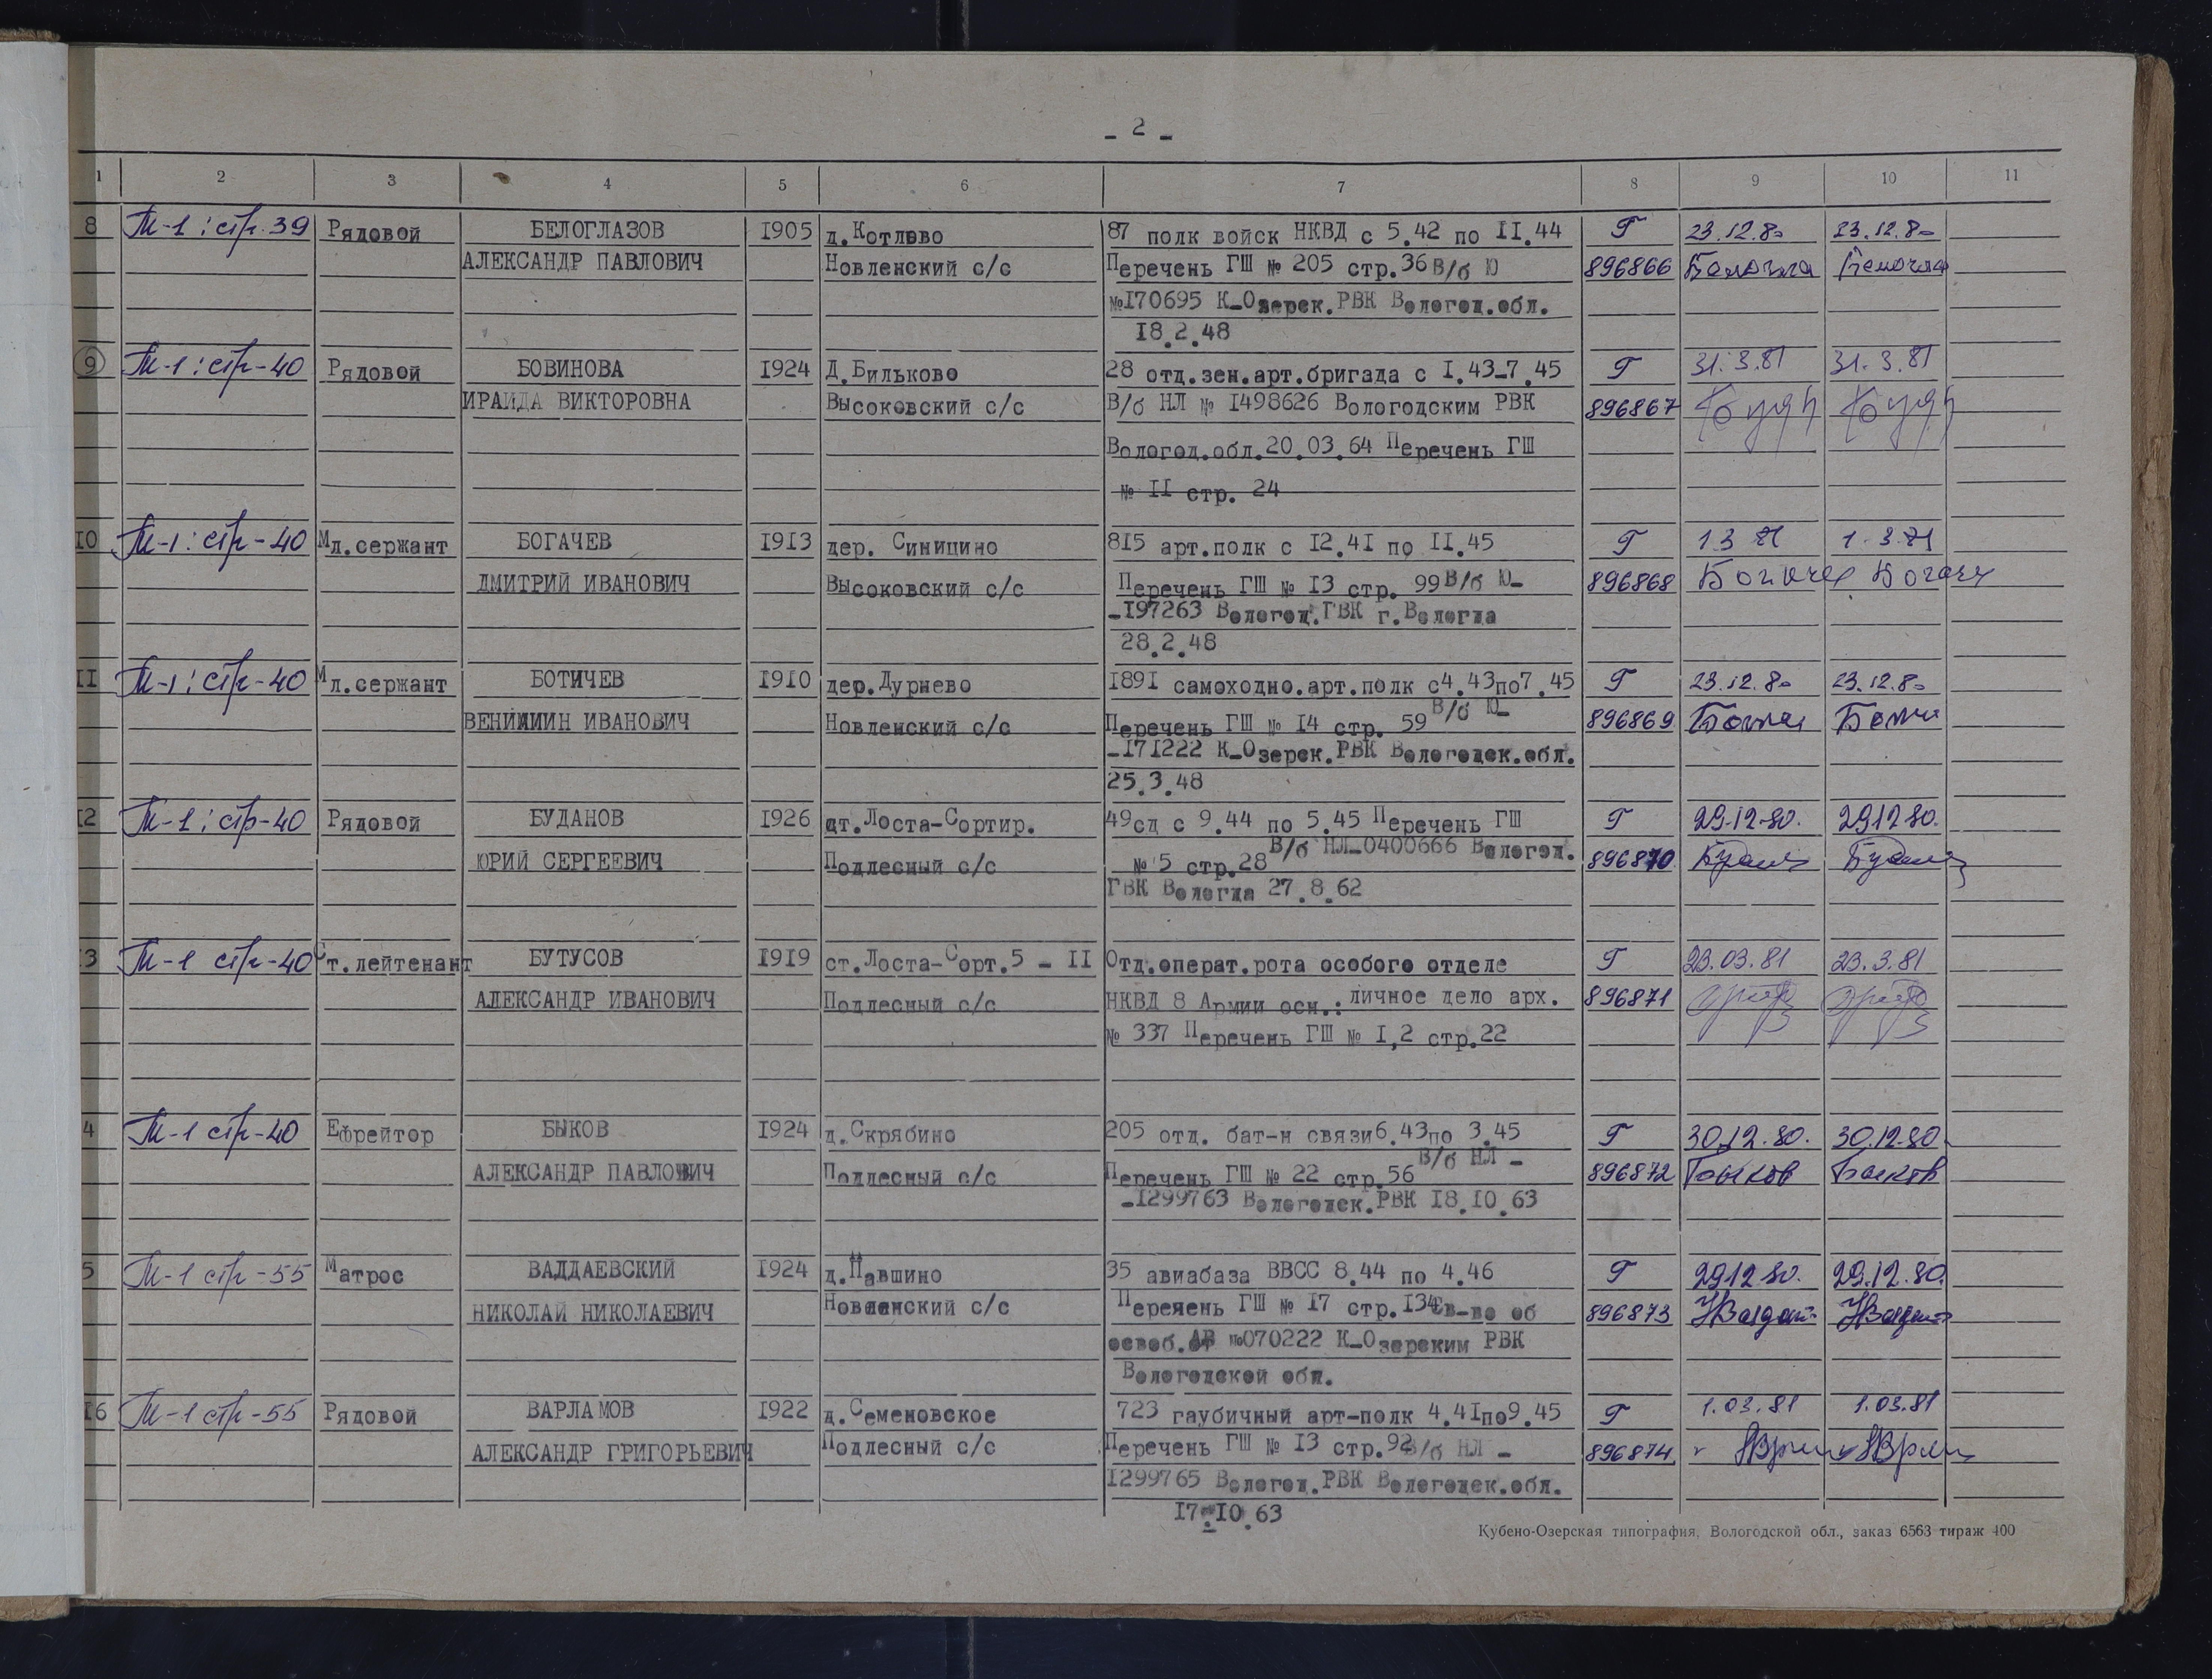 - 2 -
1 2 3 4 5 6 7 8 9 10 11
8 М-1: стр. 39 Рядовой БЕЛОГЛАЗОВ 1905 д.Котлово 87 полк войск НКВД с 5.42 по II.44 Г 23.12.80 23.12.80
АЛЕКСАНДР ПАВЛОВИЧ Новленский с/с Перечень ГШ № 205 стр.36 В/б Ю 896866
№170695 К-Озерск.РВК Вологод.обл.
18.2.48
9 М-1: стр-40 Рядовой БОВИНОВА 1924 Д.Бильково 28 отд.зен.арт.бригада с I.43-7.45 Г 31.3.81 31.3.81
ИРАИДА ВИКТОРОВНА Высоковский с/с В/б НЛ № 1498626 Вологодским РВК 896867
Вологод.обл.20.03.64 Перечень ГШ
№ II стр. 24
10 М-1: стр-40 Мл.сержант БОГАЧЕВ 1913 дер. Синицино 815 арт.полк с 12.41 по II.45 Г 1 3 81 1.3.81
ДМИТРИЙ ИВАНОВИЧ Высоковский с/с Перечень ГШ № 13 стр. 99 В/б Ю- 896868
-197263 Вологод.ГВК г.Вологда
28.2.48
II М-1: стр-40 Мл.сержант БОТИЧЕВ 1910 дер.Дурнево 1891 самоходно.арт.полк с4.43по7.45 Г 23.12.80 23.12.80
ИВАНОВИЧ Новленский с/с Перечень ГШ № 14 стр. 59 В/б Ю- 896869
-171222 К-Озерск.РВК Вологодск.обл.
25.3.48
12 М-1: стр-40 Рядовой БУДАНОВ 1926 ст.Лоста-Сортир. 49сд с 9.44 по 5.45 Перечень ГШ Г 29.12.80. 29 12 80.
ЮРИЙ СЕРГЕЕВИЧ Подлесный с/с № 5 стр.28 В/б НЛ-0400666 Вологод. 896870
ГВК Вологда 27.8.62
3 М-1 стр-40 Ст.лейтенант БУТУСОВ 1919 ст.Лоста-Сорт.5 - II Отд.операт.рота особого отделе Г 23.03.81 23.3.81
АЛЕКСАНДР ИВАНОВИЧ Подлесный с/с НКВД 8 Армии осн.: личное дело арх. 896871
№ 337 Перечень ГШ № I,2 стр.22
4 М-1 стр-40 Ефрейтор БЫКОВ 1924 д.Скрябино 205 отд. бат-н связи6.43по 3.45 Г 30.12.80. 30.12.80
АЛЕКСАНДР ПАВЛОВИЧ Подлесный с/с Перечень ГШ № 22 стр.56 В/б НЛ - 896872 Быков Быков
-1299763 Вологодск.РВК 18.10.63
5 М-1 стр-55 Матрос ВАЛДАЕВСКИЙ 1924 д.Павшино 35 авиабаза ВВСС 8.44 по 4.46 Г 29 12 80. 29.12.80.
НИКОЛАЙ НИКОЛАЕВИЧ Новленский с/с Перечень ГШ № 17 стр.134 Св-во об 896873
освоб. №070222 К-Озерским РВК
Вологодской обл.
16 М-1 стр-55 Рядовой ВАРЛАМОВ 1922 д.Семеновское 723 гаубичный арт-полк 4.41по9.45 Г 1.03.81 1.03.81
АЛЕКСАНДР ГРИГОРЬЕВИЧ Подлесный с/с Перечень ГШ № 13 стр.92 В/б НЛ - 896874
1299765 Вологод.РВК Вологодск.обл.
17.10.63
Кубено-Озерская типография, Вологодской обл., заказ 6563 тираж 400